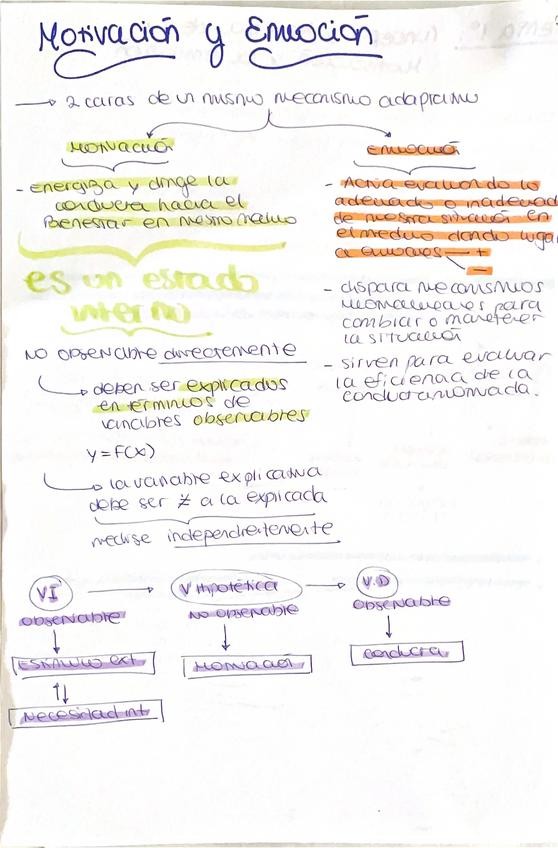 Motivación y Emoción
→ 2 caras de un mismo mecanismo adaptativo
MOTIVACIÓN
- Energiza y dirige la
conducta hacia el
Bienestar en nuestro medio
es un estado
interno
NO OBSERVABLE directamente
→ deben ser explicados
en términos de
variables observables
y = F(x)
→ la variable explicativa
debe ser ≠ a la explicada
medirse independientemente
EMOCIÓN
- Activa evaluando lo
adecuado o inadecuado
de nuestra situación en
el medio dando lugar
a emociones +
-
- dispara mecanismos
para
cambiar o mantener
la situación
- sirven para evaluar
la eficiencia de la
conducta motivada.
VI → V Hipotética → V.D
OBSERVABLE NO OBSERVABLE OBSERVABLE
↓ ↓ ↓
ESTÍMULO ext MOTIVACIÓN conducta
↑↓
Necesidad int